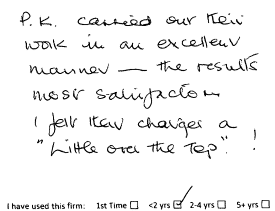 P.K. carried out their
work in an excellent
manner — the results
most satisfactory
I felt their charges a
"little over the top". !
I have used this firm: 1st Time ☐ <2 yrs ☑ 2-4 yrs ☐ 5+ yrs ☐